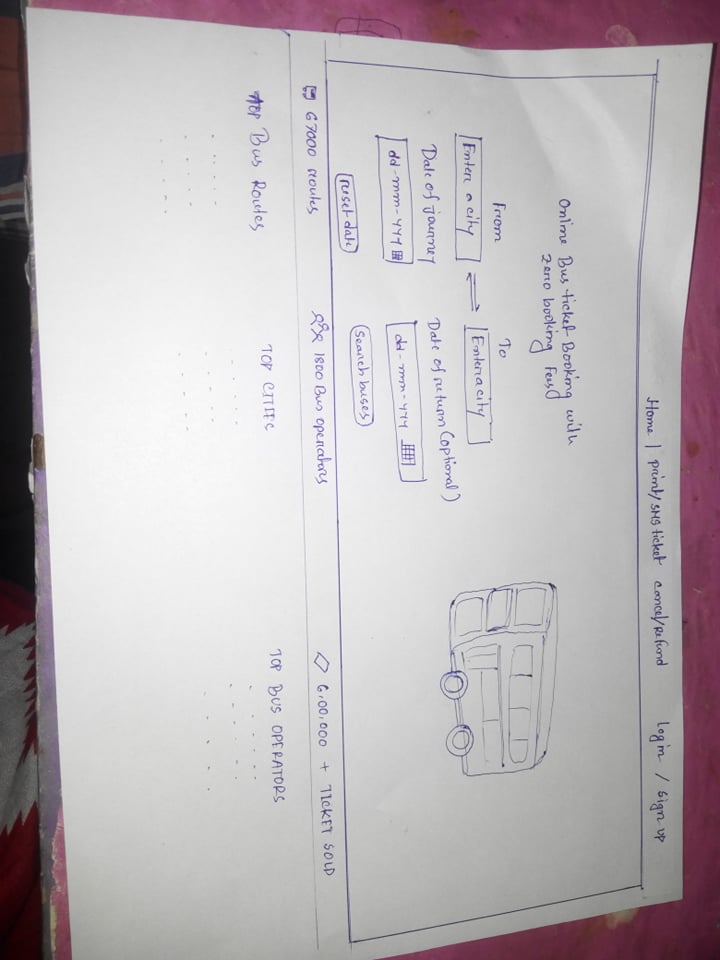 Home | print/SMS ticket cancel/Refund Login / Sign up
Online Bus ticket Booking with
zero booking Fees
From To
Enter a city Enter a city
Date of journey Date of return (optional)
dd-mm-yyy dd-mm-yyy
reset date search buses
67000 routes 1800 Bus operators 6,00,000 + TICKET SOLD
TOP Bus Routes TOP CITIES TOP BUS OPERATORS